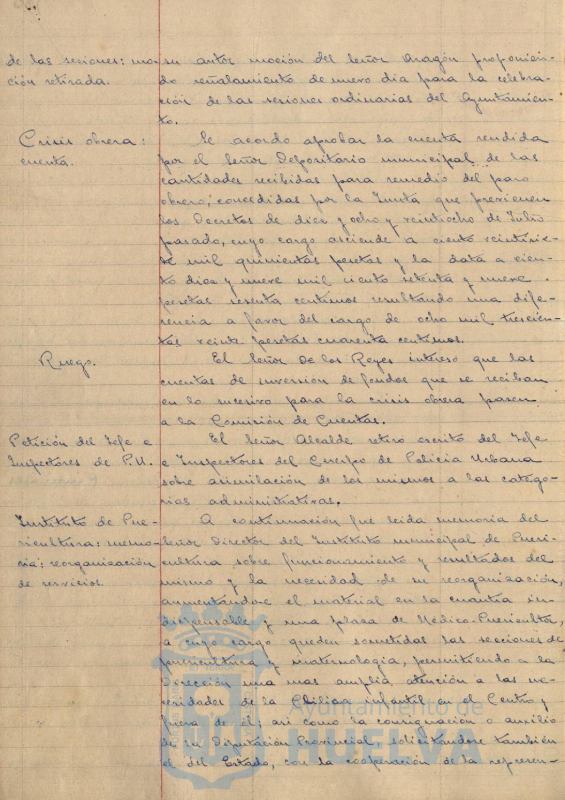 de las sesiones: mo-
ción retirada.
su autor moción del Señor Aragón proponien-
do señalamiento de nuevo dia para la celebra-
ción de las sesiones ordinarias del Ayuntamien-
to.
Crisis obrera:
cuenta.
Se acordo aprobar la cuenta rendida
por el Señor Depositario municipal de las
cantidades recibidas para remedio del paro
obrero, concedidas por la Junta que previenen
los Decretos de diez y ocho y veintiocho de Julio
pasado, cuyo cargo asciende a ciento veintisie-
te mil quinientas pesetas y la data a cien-
to diez y nueve mil ciento setenta y nueve
pesetas sesenta centimos resultando una dife-
rencia a favor del cargo de ocho mil trescien-
tas veinte pesetas cuarenta centimos.
Ruego.
El Señor De los Reyes intereso que las
cuentas de inversion de fondos que se reciban
en lo sucesivo para la crisis obrera pasen
a la Comisión de Cuentas.
Petición del Jefe e
Inspectores de P.U.
El Señor Alcalde retiro escrito del Jefe
e Inspectores del Cuerpo de Policia Urbana
sobre asimilación de los mismos a las catego-
rias administrativas.
Instituto de Pue-
ricultura: memo-
ria: reorganización
de servicios.
A continuación fue leida memoria del
Señor Director del Instituto municipal de Pueri-
cultura sobre funcionamiento y resultados del
mismo y la necesidad de su reorganización,
aumentandose el material en la cuantia in-
dispensable y una plaza de Médico-Puericultor,
a cuyo cargo queden sometidas las secciones de
puericultura y maternologia, permitiendo a la
Dirección una mas amplia atención a las ne-
cesidades de la infantil en el Centro y
fuera de él; asi como la consignación o auxilio
de la Diputación Provincial, solicitandose también
el del Estado, con la cooperación de la represen-
Ayuntamiento de
HUELVA